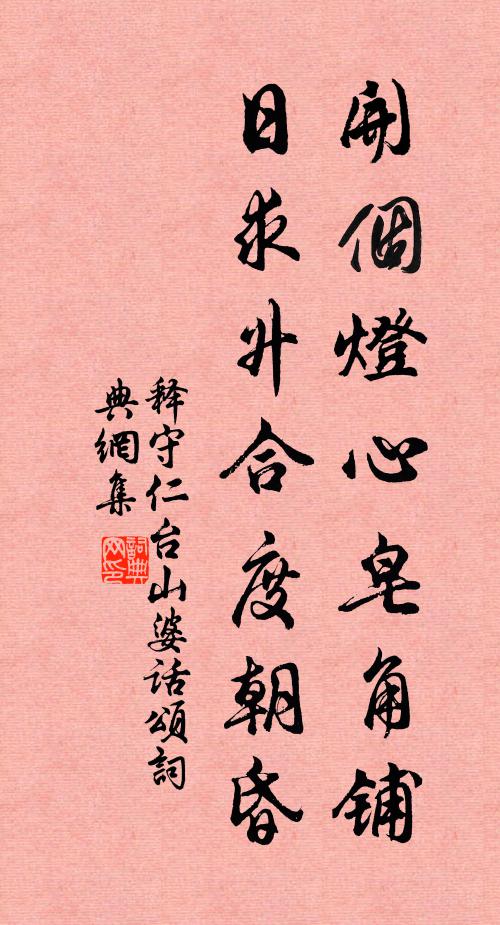 開個燈心皂角铺
日求升合度朝昏
释守仁台山婆话頌詞
典網集
詞典
网印